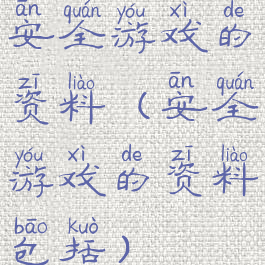 ān quán yóu xì de
安全游戏的
zī liào ān quán
资料(安全
yóu xì de zī liào
游戏的资料
bāo kuò
包括)